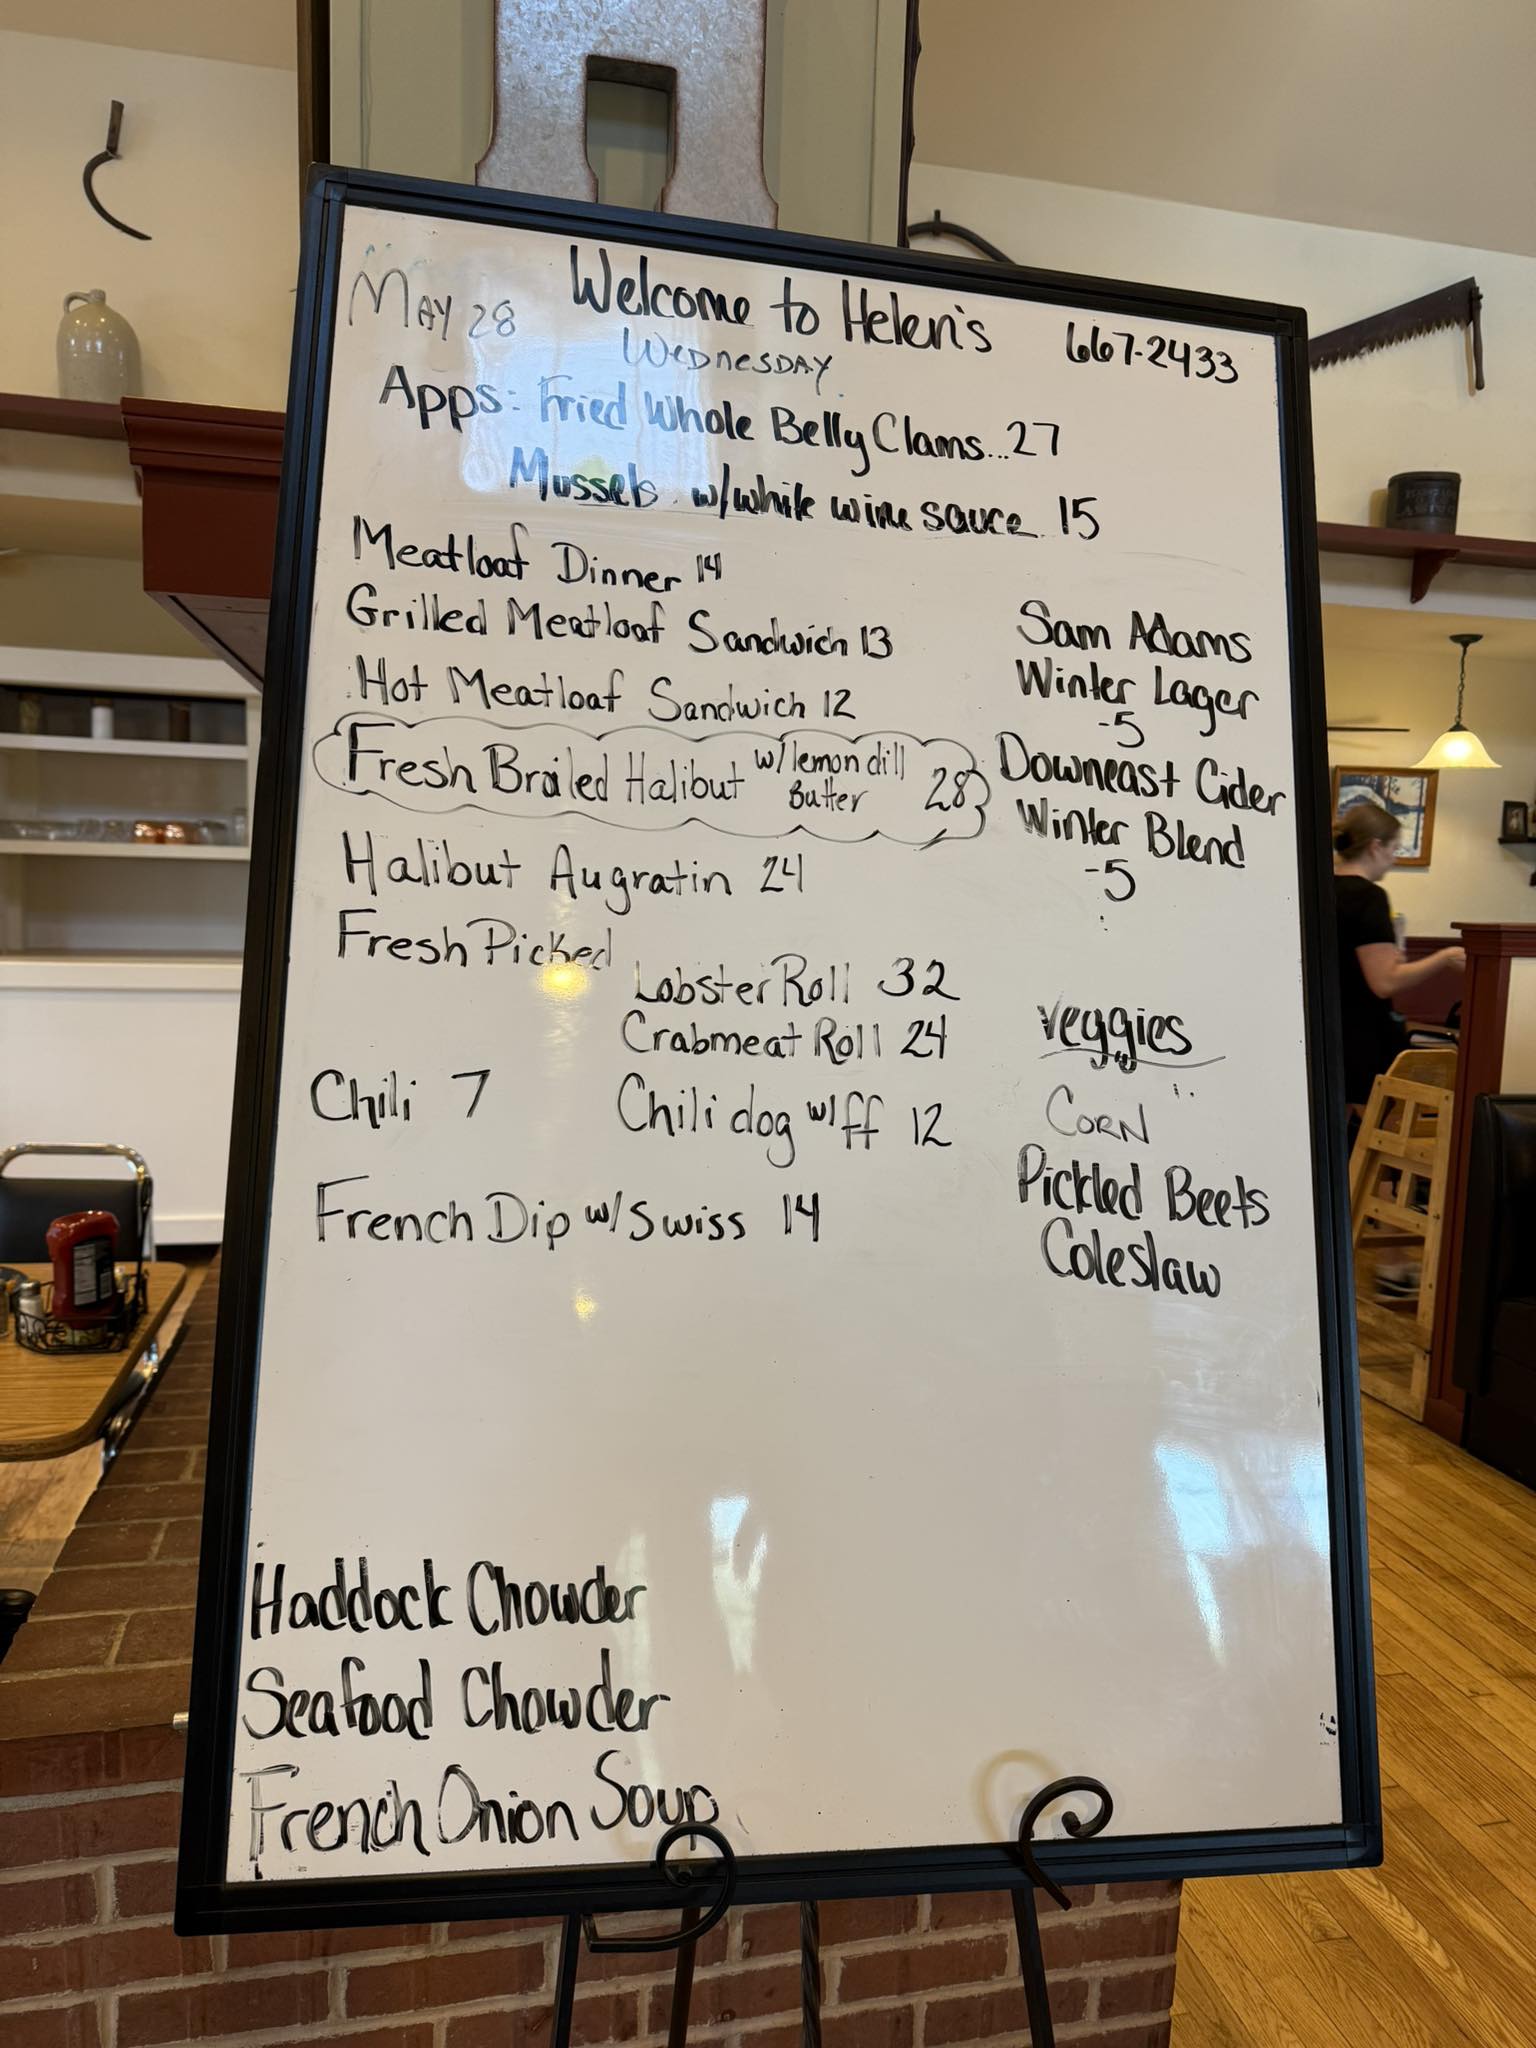 May 28 Welcome to Helen's 667-2433
Wednesday
Apps: Fried Whole Belly Clams...27
Mussels w/white wine sauce 15
Meatloaf Dinner 14
Grilled Meatloaf Sandwich 13
Hot Meatloaf Sandwich 12
Fresh Broiled Halibut w/lemon dill Butter 28
Halibut Augratin 24
Fresh Picked
Lobster Roll 32
Crabmeat Roll 24
Chili 7 Chili dog w/ff 12
French Dip w/Swiss 14
Sam Adams
Winter Lager
-5
Downeast Cider
Winter Blend
-5
Veggies
Corn
Pickled Beets
Coleslaw
Haddock Chowder
Seafood Chowder
French Onion Soup